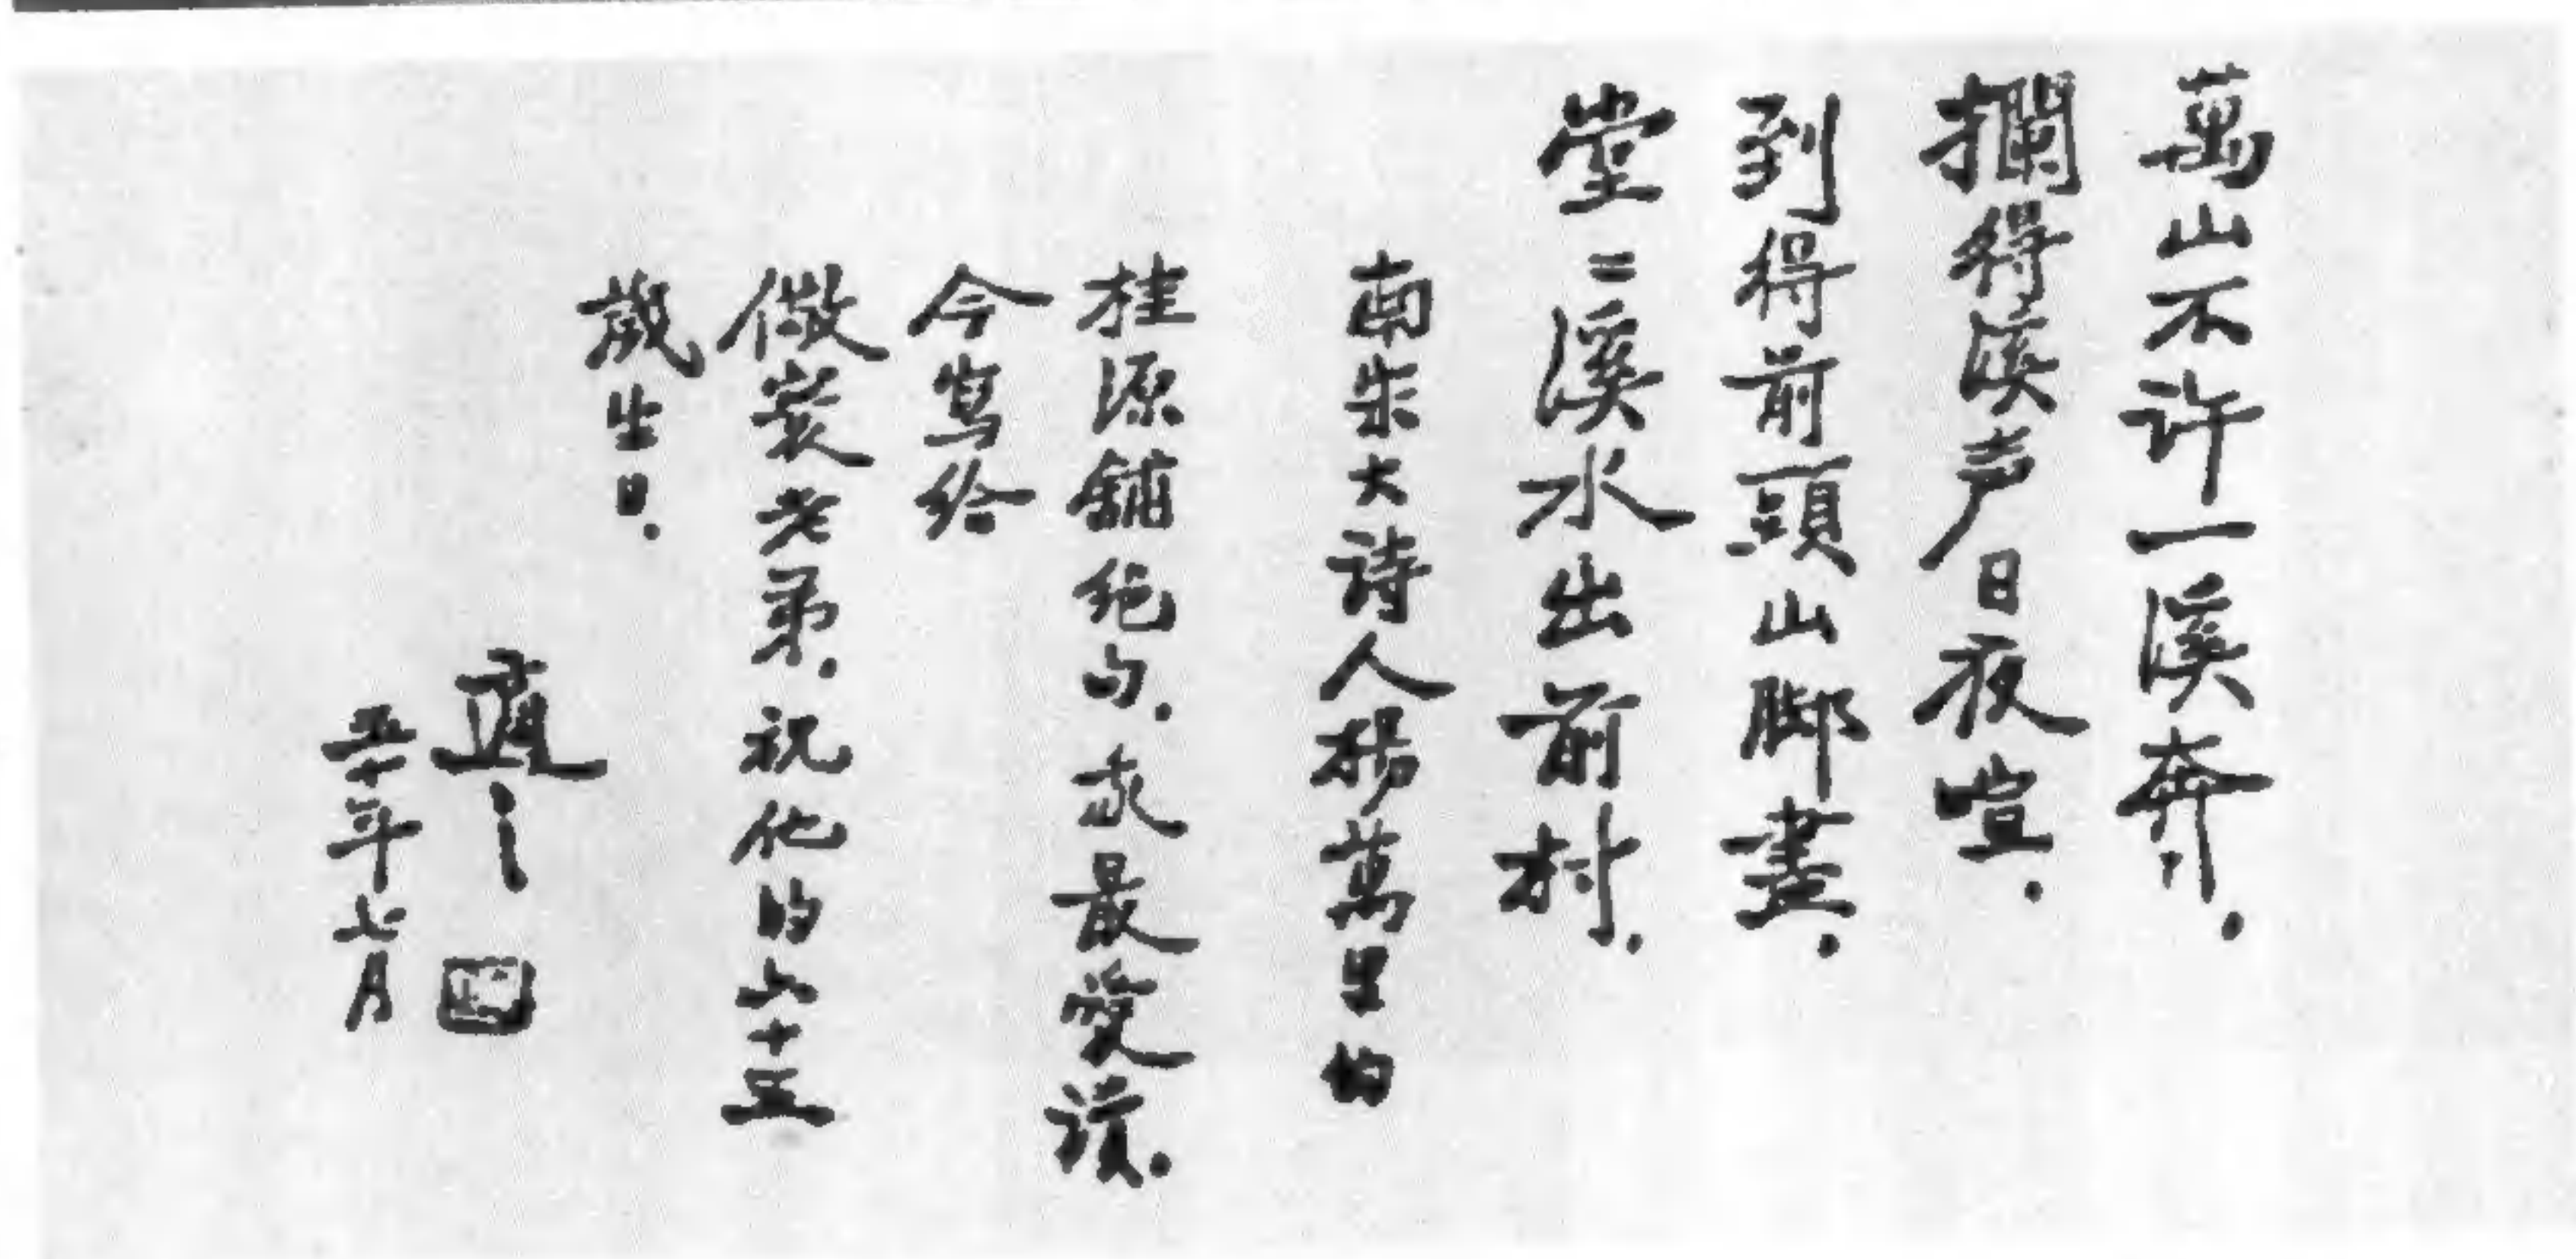 萬山不許一溪奔.
攔得溪声日夜喧.
到得前頭山脚盡.
堂〻溪水出前村.
南宋大詩人楊萬里的
桂源鋪绝句.我最愛讀.
今寫给
儆寰老弟.祝他的六十五
歲生日.
適之
五十年七月